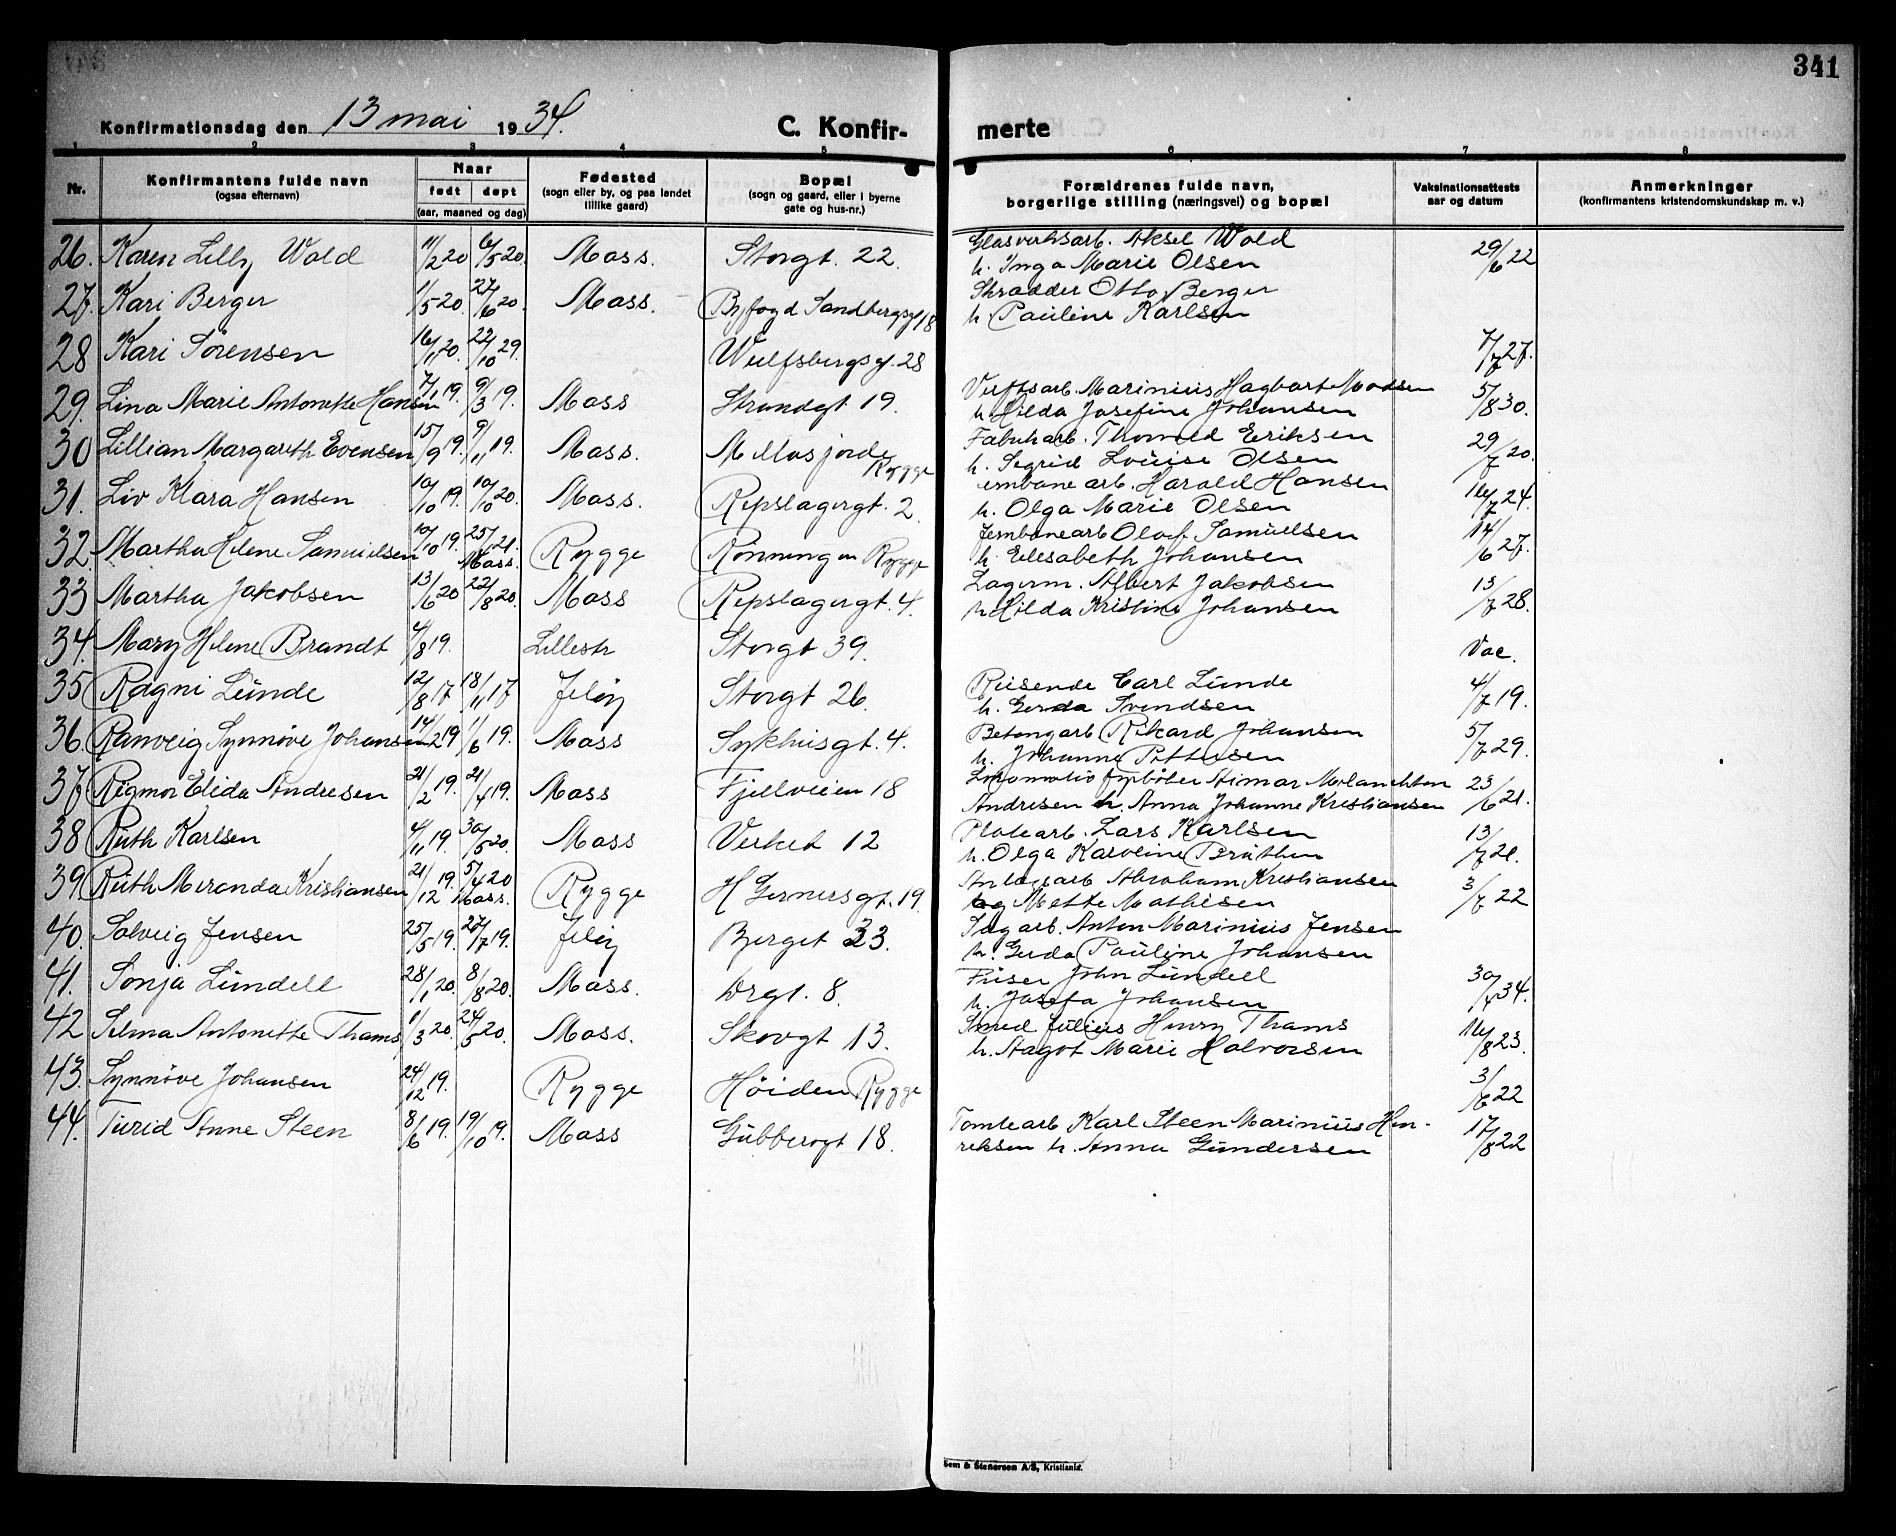 341
Konfirmationsdag den 13 mai 1934.
C. Konfirmerte
1 2 3 4 5 6 7 8
Nr.
Konfirmantens fulde navn
(ogsaa efternavn)
Naar
født døpt
(aar, maaned og dag)
Fødested
(sogn eller by, og paa landet
tillike gaard)
Bopæl
(sogn og gaard, eller i byerne
gate og hus-nr.)
Forældrenes fulde navn,
borgerlige stilling (næringsvei) og bopæl
Vaksinationsattests
aar og datum
Anmerkninger
(konfirmantens kristendomskundskap m. v.)
26. Karen Lilly Wold 11/2 20 6/5 20. Moss. Storgt. 22. Glasverksarb. Aksel Wold 29/6 22
h. Inga Marie Olsen
27. Kari Berger 1/5 20 27/6 20 Moss. Byfogd Sandbergsgt 18 Skrædder Otto Berger
h. Pauline Karlsen
28 Kari Sørensen 16/11 20. 22/10 29. Wulfsbergsgt. 28 7/7 27.
29. Lina Marie Antonette Hansen 7/1 19. 9/3 19. Moss Strandgt 19. Verftsarb. Marinius Hagbart Madsen 5/8 30.
h. Hilda Josefine Johansen
30 Lillian Margareth Evensen 15/9 19. 9/11 19. Moss. Mellosjorde Rygge Fabrikarb. Thorvald Eriksen 29/7 20.
h. Sigrid Lovise Olsen
31. Liv Klara Hansen 10/10 19. 10/10 20. Moss. Repslagergt. 2 Harald Hansen 16/7 24.
h. Olga Marie Olsen
32. Martha Helene Samuelsen 10/10 19. 25/ 21. Moss. Rygge Rønningen Rygge Jernbanearb Olaf Samuelsen 14/6 27.
h. Elisabeth Johansen
33 Martha Jakobsen 13/6 20 22/8 20. Moss Repslagergt. 4. Lagerm. Albert Jakobsen 13/7 28.
h. Hilda Kristine Johansen
34. Mary Helene Brandt 4/8 19. Lillestr Storgt 39. Vac.
35 Ragni Lunde 12/8 17 18/11 17 Jeløy Storgt 26. Reisende Carl Lunde 4/7 19.
h. Gerda Svendsen
36. Ranveig Synnøve Johansen 14/2 19 1/6 19. Moss Sykhusgt. 4. Betongarb Rikard Johansen 5/7 29.
h. Johanne Pettersen
37 Rigmor Elida Andresen 21/2 19. 21/4 19. Moss Fjellveien 18 Lokomotiv fyrbøter Melanchton 23/6 21.
Andresen h. Anna Johanne Kristiansen
38 Ruth Karlsen 4/11 19. 30/5 20. Moss Verket 12 Platearb. Lars Karlsen 13/7 21.
h. Olga Karoline Bråthen
39 Ruth Miranda Kristiansen 21/12 19. 5/4 20 Moss. Rygge H Gernersgt. 19. Anlægsarb Abraham Kristiansen 3/7 22
og Mette Mathisen
40. Solveig Jensen 25/5 19. 27/7 19. Jeløy Berget 33. Sagarb. Anton Marinius Jensen
h. Gerda Pauline Johansen
41. Sonja Lundell 28/1 20. 8/8 20. Moss. Drgt. 8. Friser John Lundell 30/4 34.
h. Josefa Johansen
42 Selma Antonette Thams 1/3 20. 24/5 20. Moss. Skovgt 13. Smed Julius Henry Thams 16/8 23.
h. Aagot Marie Halvorsen
43. Synnøve Johansen 24/12 19. Rygge Høiden Rygge 3/6 22
44. Turid Anne Steen 8/6 19. 19/10 19. Moss Gubberogt 18. Tomtearb Karl Steen Marinius Hen- 17/8 22
reksen h. Anna Gundersen
Sem & Stenersen A/S, Kristiania.